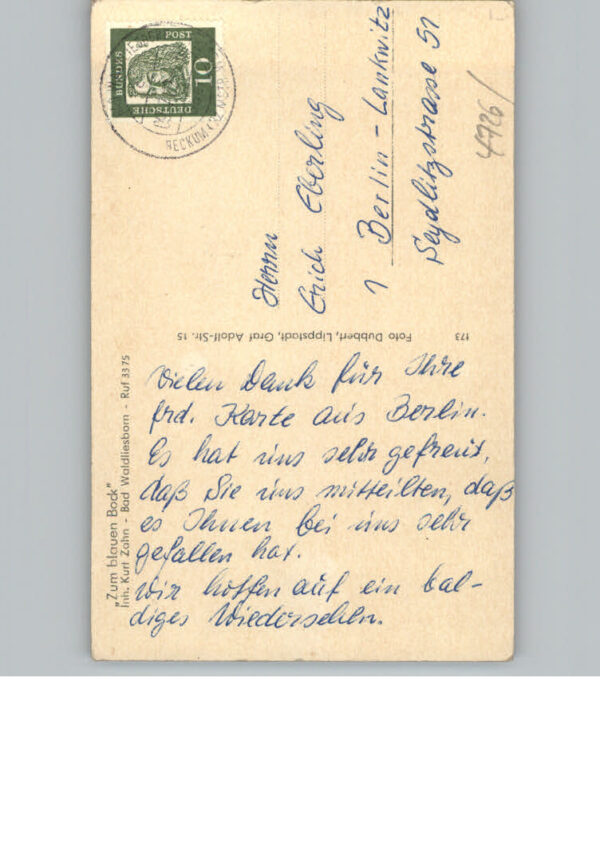 DEUTSCHE
BUNDES
POST
10
BECKUM
4726/
Herrn
Erich Eberling
1 Berlin-Lankwitz
Seydlitzstrasse 51
173
Foto Dubbert, Lippstadt, Graf Adolf-Str. 15
„Zum blauen Bock"
Inh. Kurt Zahn - Bad Waldliesborn - Ruf 33 75
Vielen Dank für Ihre
frd. Karte aus Berlin.
Es hat uns sehr gefreut,
daß Sie uns mitteilten, daß
es Ihnen bei uns sehr
gefallen hat.
Wir hoffen auf ein bal-
diges Wiedersehen.